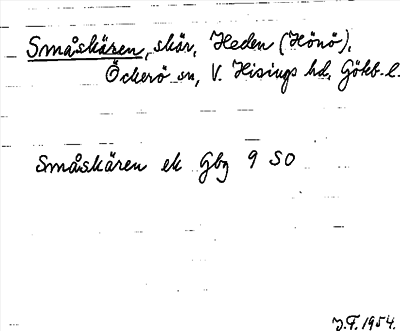 Småskären, skär, Heden (Hönö),
Öckerö sn, V. Hisings hd, Götb. l.
Småskären ek Gbg 9 SO
J.F. 1954.